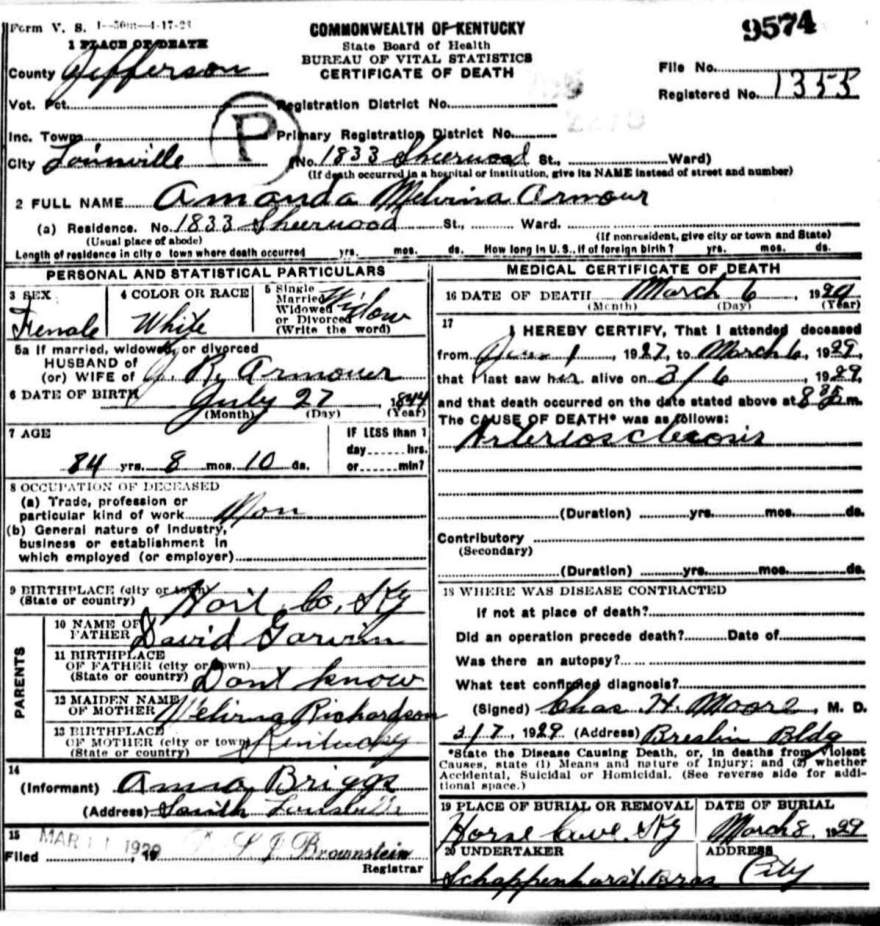 Form V. S. 1—50m—4-17-23
9574
COMMONWEALTH OF KENTUCKY
State Board of Health
BUREAU OF VITAL STATISTICS
CERTIFICATE OF DEATH
File No.
Registered No. 1355
1 PLACE OF DEATH
County Jefferson
Vot. Pct. Registration District No.
Inc. Town Primary Registration District No.
P
City Louisville (No. 1833 Sherwood St., Ward)
(If death occurred in a hospital or institution, give its NAME instead of street and number)
2 FULL NAME Amanda Melvina Armour
(a) Residence. No. 1833 Sherwood St., Ward.
(Usual place of abode) (If nonresident, give city or town and State)
Length of residence in city o town where death occurred yrs. mos. ds. How long in U. S., if of foreign birth? yrs. mos. ds.
PERSONAL AND STATISTICAL PARTICULARS
3 SEX
Female
4 COLOR OR RACE
White
5 Single
Married
Widowed
or Divorced
(Write the word)
Widow
5a If married, widowed, or divorced
HUSBAND of
(or) WIFE of J. R. Armour
6 DATE OF BIRTH July 27, 1844
(Month) (Day) (Year)
7 AGE
84 yrs. 8 mos. 10 ds.
IF LESS than 1
day hrs.
or min?
8 OCCUPATION OF DECEASED
(a) Trade, profession or
particular kind of work
(b) General nature of Industry,
business or establishment in
which employed (or employer)
9 BIRTHPLACE (city or town)
(State or country) Hart Co, Ky
PARENTS
10 NAME OF
FATHER David Garvin
11 BIRTHPLACE
OF FATHER (city or town)
(State or country) Dont know
12 MAIDEN NAME
OF MOTHER Melvina Richardson
13 BIRTHPLACE
OF MOTHER (city or town)
(State or country) Kentucky
14
(Informant) Anna Briggs
(Address) South Louisville
15
Filed MAR 11 1929, 19 S J Brownstein
Registrar
MEDICAL CERTIFICATE OF DEATH
16 DATE OF DEATH March 6, 1929
(Month) (Day) (Year)
17
I HEREBY CERTIFY, That I attended deceased
from 1, 1927, to March 6, 1929,
that I last saw her alive on 3/6, 1929,
and that death occurred on the date stated above at m.
The CAUSE OF DEATH* was as follows:
Arteriosclerosis
(Duration) yrs. mos. ds.
Contributory
(Secondary)
(Duration) yrs. mos. ds.
18 WHERE WAS DISEASE CONTRACTED
If not at place of death?
Did an operation precede death? Date of
Was there an autopsy?
What test confirmed diagnosis?
(Signed) Chas H. Moore, M. D.
3/7, 1929 (Address) Breslin Bldg
*State the Disease Causing Death, or, in deaths from Violent
Causes, state (1) Means and nature of Injury; and (2) whether
Accidental, Suicidal or Homicidal. (See reverse side for addi-
tional space.)
19 PLACE OF BURIAL OR REMOVAL
Horse Cave, Ky
DATE OF BURIAL
March 8, 1929
20 UNDERTAKER
Schoppenhorst Bros
ADDRESS
City